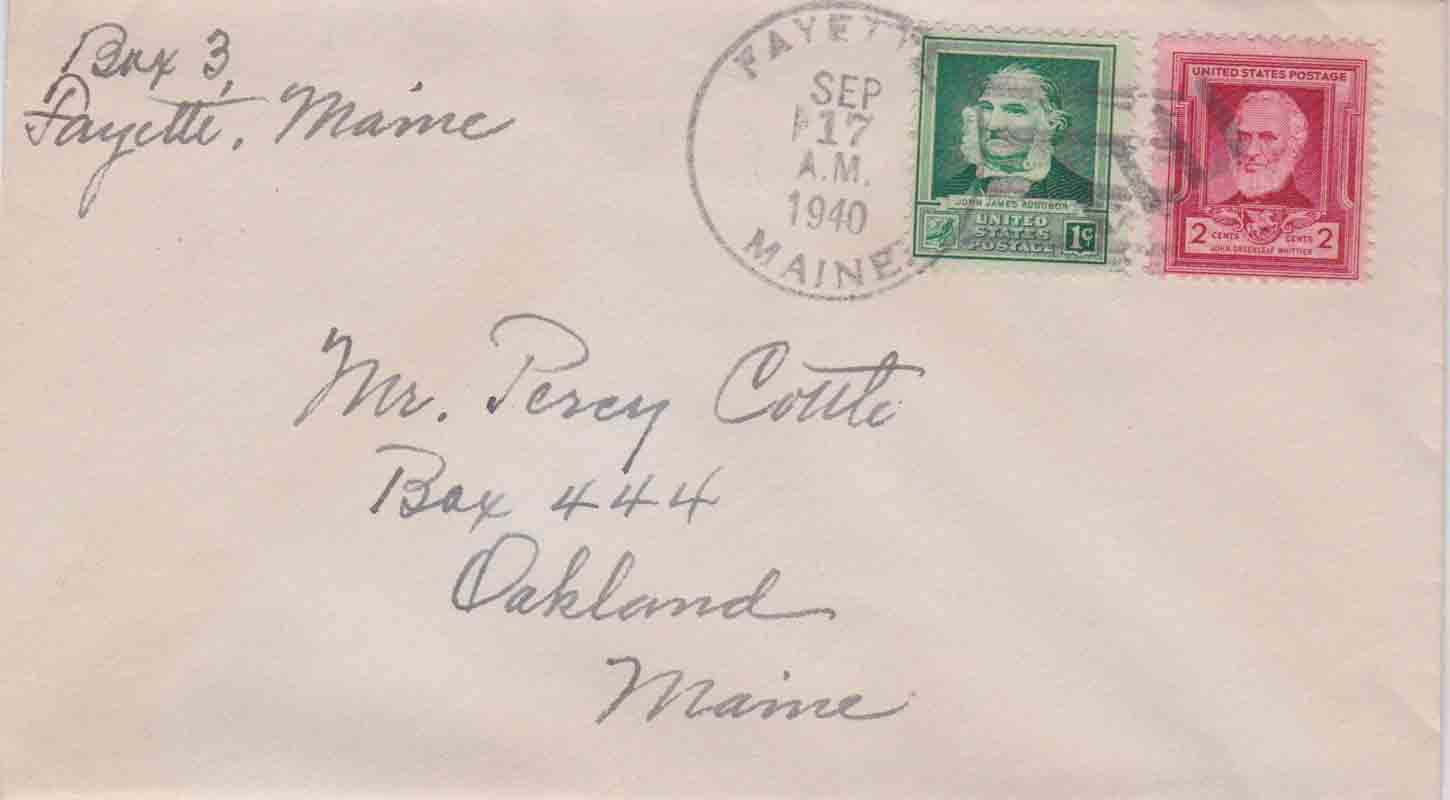 Box 3,
Fayette, Maine
FAYETT
SEP
17
A.M.
1940
MAINE
JOHN JAMES AUDUBON
UNITED
STATES
POSTAGE
1¢
UNITED STATES POSTAGE
2 CENTS CENTS 2
JOHN GREENLEAF WHITTIER
Mr. Percy Cottle
Box 444
Oakland
Maine